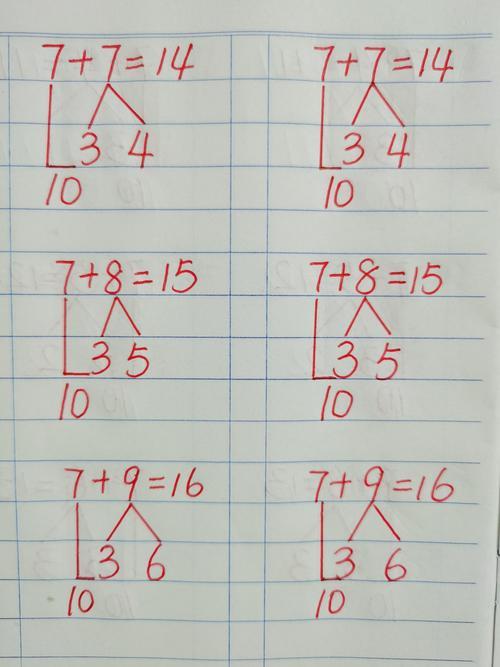 7+7=14 7+7=14
3 4 3 4
10 10
7+8=15 7+8=15
3 5 3 5
10 10
7+9=16 7+9=16
3 6 3 6
10 10